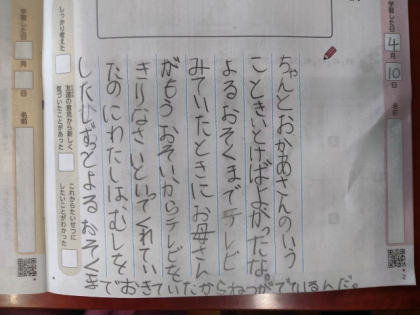 学習した日
4
月
10
日
名前
ちゃんとおかあさんのいう
こときいとけばよかったな。
よるおそくまでテレビ
みていたときにお母さん
がもうおそいからテレビを
きりなさいといてくれてい
たのにわたしは、むしを
したしずっとよるおそくま
でおきていたからねつがでているんだ。
しっかり考えた
友達の意見から新しく
気づいたことがあった
これからたいせつに
したいことがわかった
学習した日
月
日
名前